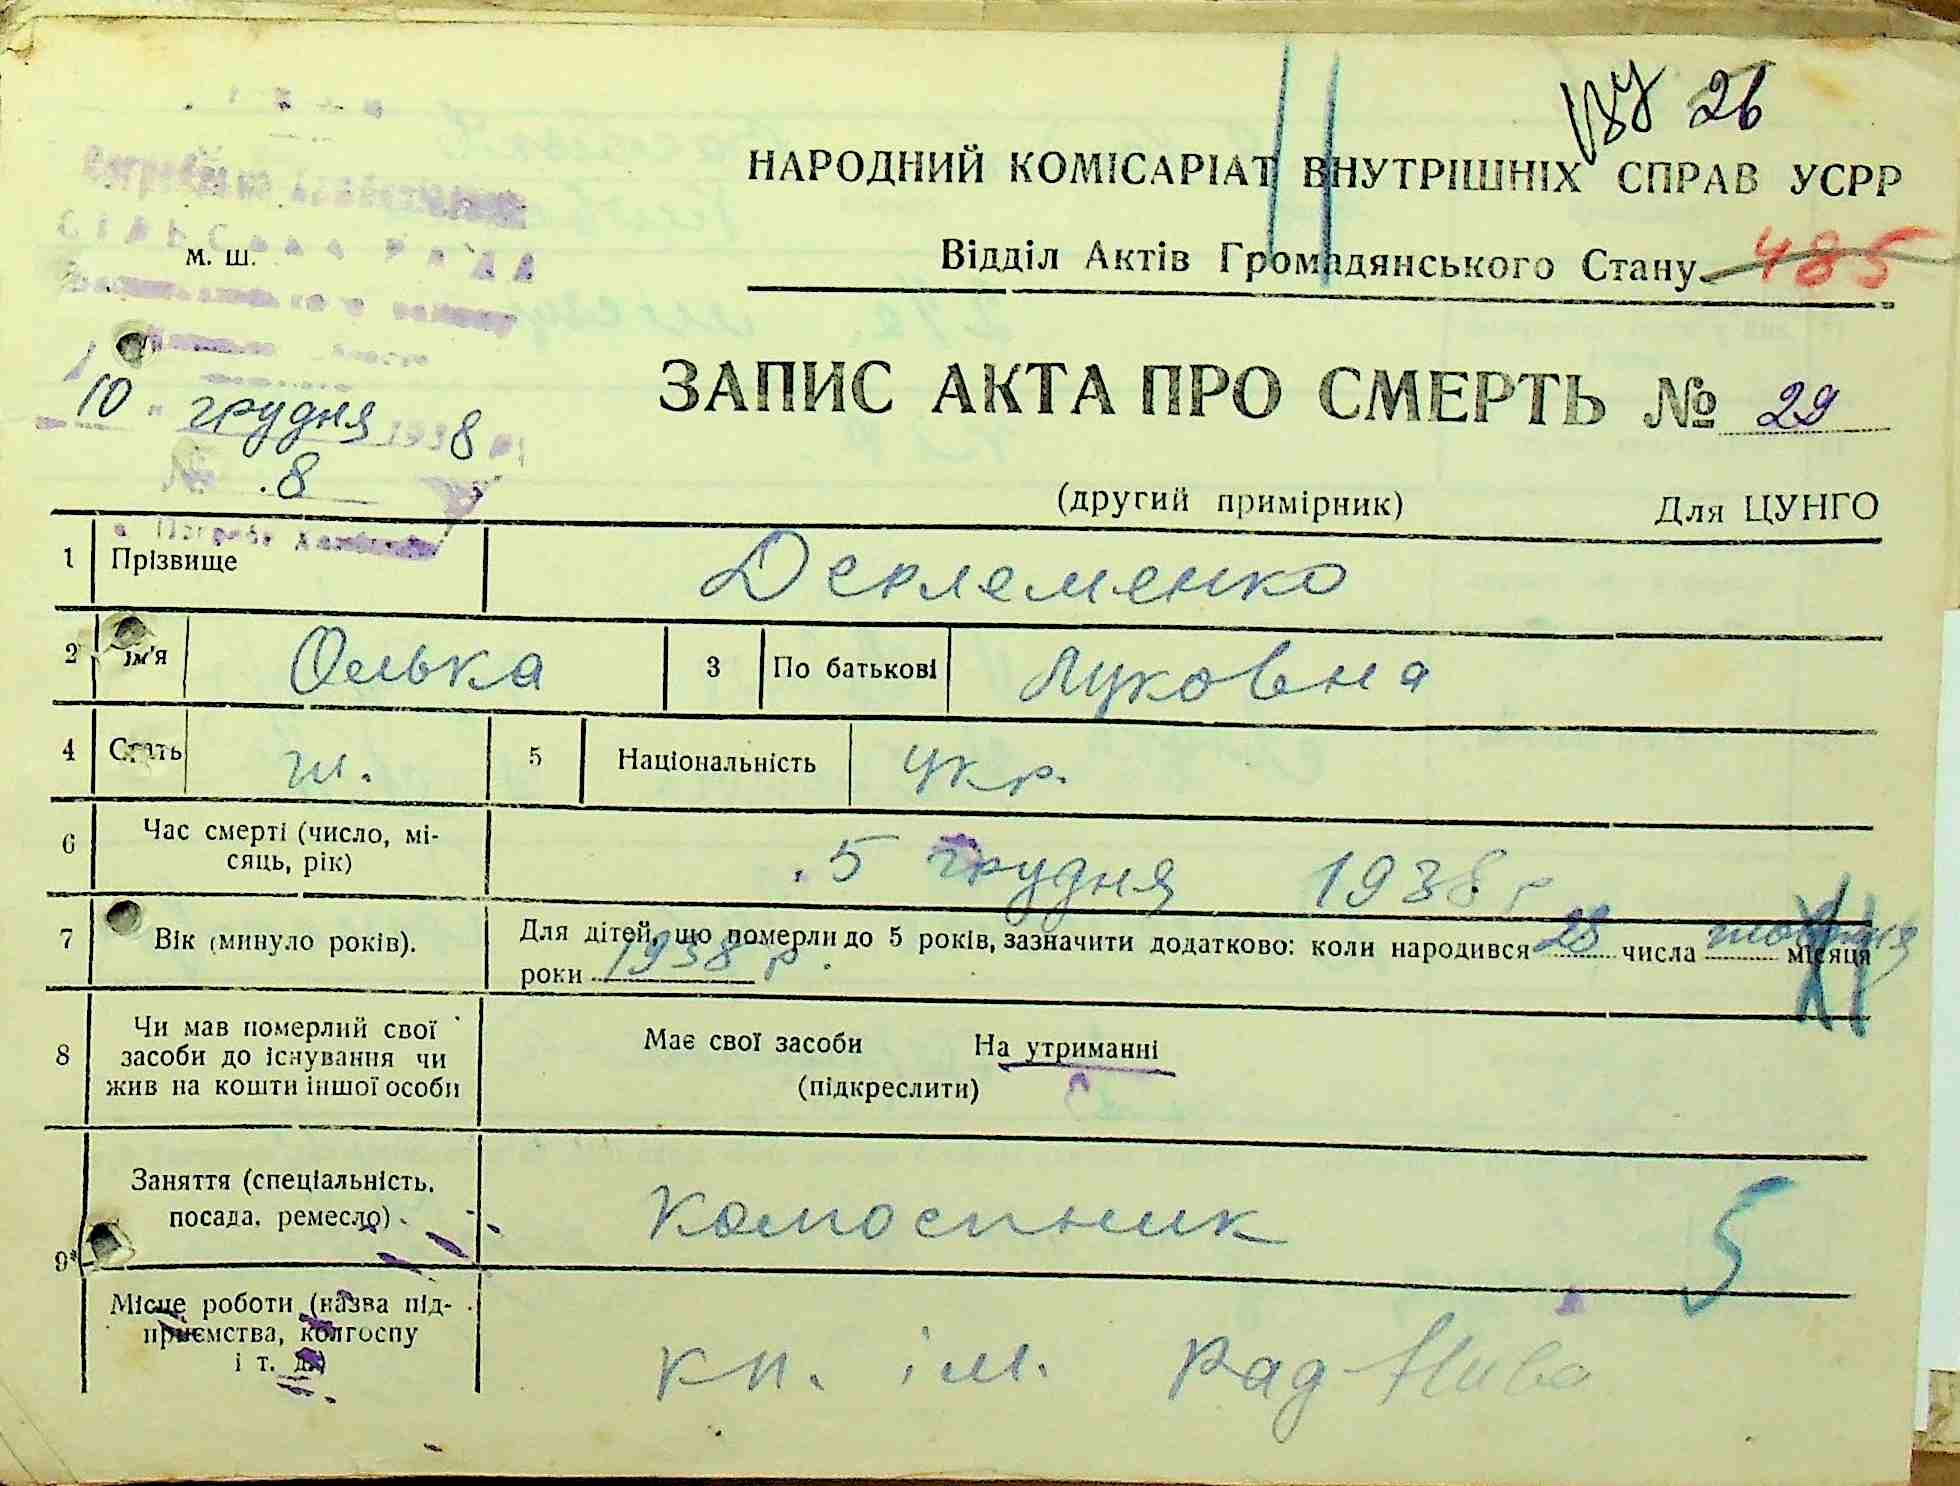 26
НАРОДНИЙ КОМІСАРІАТ ВНУТРІШНІХ СПРАВ УСРР
Відділ Актів Громадянського Стану 485
СІЛЬСЬКА РАДА
м. ш.
ЗАПИС АКТА ПРО СМЕРТЬ № 29
10 грудня 1938
№ 8
(другий примірник) Для ЦУНГО
1 Прізвище
2 Ім'я Олька 3 По батькові Луковна
4 Стать ж. 5 Національність укр.
6 Час смерті (число, мі-
сяць, рік) 5 грудня 1938 р
7 Вік (минуло років). Для дітей, що померли до 5 років, зазначити додатково: коли народився 28 числа жовтня місяця
роки 1938 р.
8 Чи мав померлий свої
засоби до існування чи
жив на кошти іншої особи
Має свої засоби На утриманні
(підкреслити)
9* Заняття (спеціальність,
посада, ремесло)
5
Місце роботи (назва під-
приємства, колгоспу
і т. д.)
ім. Рад Нива